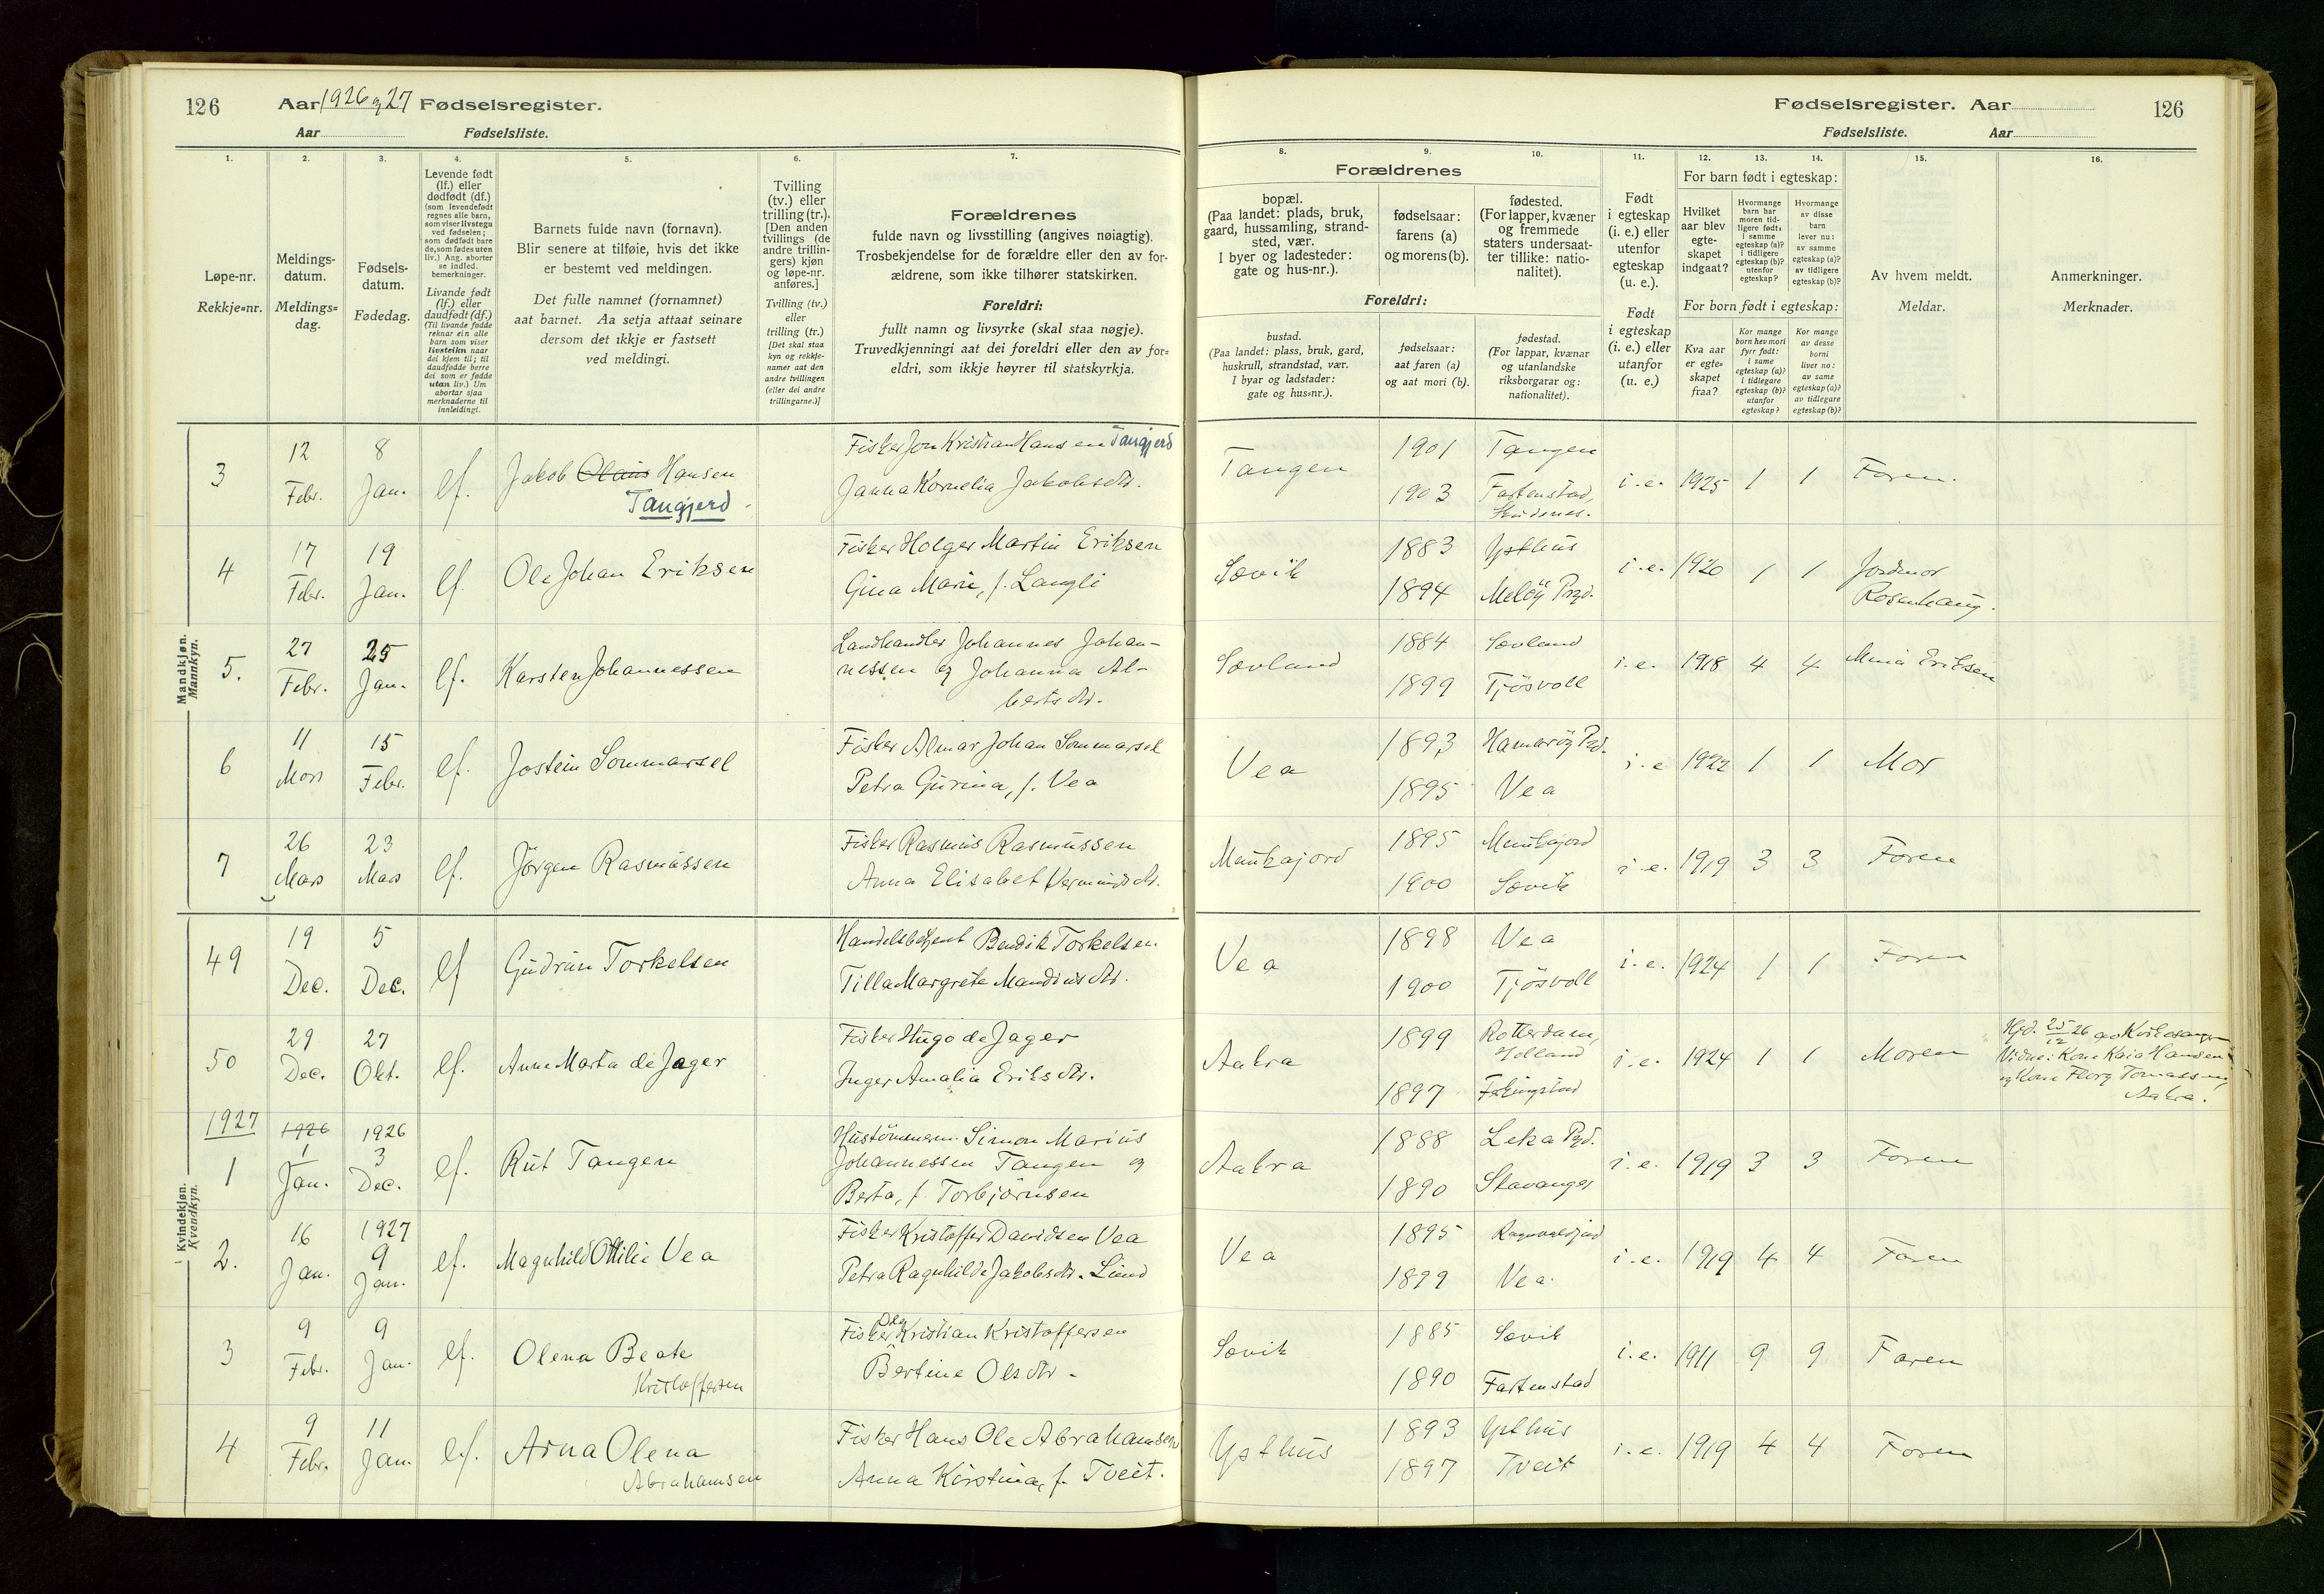 126 Aar 1926 og 27 Fødselsregister.
Aar Fødselsliste.
Fødselsregister. Aar 126
Fødselsliste. Aar
1. 2. 3. 4. 5. 6. 7. 8. 9. 10. 11. 12. 13. 14. 15. 16.
Løpe-nr.
Rekkje=nr.
Meldings-
datum.
Meldings=
dag.
Fødsels-
datum.
Fødedag.
Levende født
(lf.) eller
dødfødt (df.)
(som levendefødt
regnes alle barn,
som viser livstegn
ved fødselen;
som dødfødt bare
de, som fødes uten
liv.) Ang. aborter
se indled.
bemerkninger.
Livande født
(lf.) eller
daudfødt (df.)
(Til livande fødde
reknar ein alle
barn som viser
livsteikn naar
dei kjem til; til
daudfødde berre
dei som er fødde
utan liv.) Um
abortar sjaa
merknaderne til
innleidingi.
Barnets fulde navn (fornavn).
Blir senere at tilføie, hvis det ikke
er bestemt ved meldingen.
Det fulle namnet (fornamnet)
aat barnet. Aa setja attaat seinare
dersom det ikkje er fastsett
ved meldingi.
Tvilling
(tv.) eller
trilling (tr.).
[Den anden
tvillings (de
andre trillin-
gers) kjøn
og løpe-nr.
anføres.]
Tvilling (tv.)
eller
trilling (tr.)
[Det skal staa
kyn og rekkje-
numer aat den
andre tvillingen
(eller dei andre
trillingarne.)]
Forældrenes
fulde navn og livsstilling (angives nøiagtig).
Trosbekjendelse for de forældre eller den av for-
ældrene, som ikke tilhører statskirken.
Foreldri:
fullt namn og livsyrke (skal staa nøgje).
Truvedkjenningi aat dei foreldri eller den av for=
eldri, som ikkje høyrer til statskyrkja.
Forældrenes
bopæl.
(Paa landet: plads, bruk,
gaard, hussamling, strand-
sted, vær.
I byer og ladesteder:
gate og hus-nr.).
fødselsaar:
farens (a)
og morens (b).
fødested.
(For lapper, kvæner
og fremmede
staters undersaat-
ter tillike: natio-
nalitet).
Foreldri:
bustad.
(Paa landet: plass, bruk, gard,
huskrull, strandstad, vær.
I byar og ladstader:
gate og hus=nr.).
fødselsaar:
aat faren (a)
og aat mori (b).
fødestad.
(For lappar, kvænar
og utanlandske
riksborgarar og:
nationalitet).
Født
i egteskap
(i. e.) eller
utenfor
egteskap
(u. e.).
Født
i egteskap
(i. e.) eller
utanfor
(u. e.)
For barn født i egteskap:
Hvilket
aar blev
egte-
skapet
indgaat?
Hvormange
barn har
moren tid-
ligere født:
i samme
egteskap (a)?
i tidligere
egteskap (b)?
utenfor
egteskap?
Hvormange
av disse
barn
lever nu:
av samme
egteskap (a)?
av tidligere
egteskap (b)?
For born født i egteskap:
Kva aar
er egte=
skapet
fraa?
Kor mange
born hev mori
fyrr født:
i same
egteskap (a)?
i tidlegare
egteskap (b)?
utanfor
egteskap?
Kor mange
av desse
borni
liver no:
av same
egteskap (a)?
av tidlegare
egteskap (b)?
Av hvem meldt.
Meldar.
Anmerkninger.
Merknader.
Mandkjøn.
Mannkyn.
3 12 Febr. 8 Jan. lf. Jakob Olaus Hansen
Tangjerd
Fisker Jon Kristian Hansen Tangjerd
Janna Kornelia Jakobsdtr.
Tangen 1901 Tangen
1903 Fartenstad, Skudenes.
i.e. 1925 1 1 Faren.
4 17 Febr. 19 Jan. lf. Ole Johan Eriksen
Fisker Holger Martin Eriksen
Gina Marie, f. Langli
Sævik 1883 Ysthus
1894 Meløy Prgd.
i.e. 1920 1 1 Jordmor
Rosenhaug.
5. 27 Febr. 25 Jan. lf. Karsten Johannessen
Landhandler Johannes Johan-
nessen og Johanna Al-
bertsdtr.
Sævland 1884 Sævland
1899 Tjösvoll
i.e. 1918 4 4 Mina Eriksen
6 11 Mars 15 Febr. lf. Jostein Sommarsel
Fisker Almar Johan Sommarsel
Petra Gurina, f. Vea
Vea 1893 Hamarøy Prd.
1895 Vea
i.e 1922 1 1 Mor
7 26 Mars 23 Mars lf. Jörgen Rasmussen
Fisker Rasmus Rasmussen
Anna Elisabet
Munkajord 1895 Munkajord
1900 Sævik
i.e. 1919 3 3 Faren
Kvindekjøn.
Kvendkyn.
49 19 Dec. 5 Dec. lf Gudrun Torkelsen
Handelsbetjent Bendik Torkelsen.
Tilla Margrete Mandiusdtr.
Vea 1898 Vea
1900 Tjösvoll
i.e. 1924 1 1 Faren
50 29 Dec. 27 Okt. lf. Anne Marta de Jager
Fisker Hugo de Jager
Inger Amalia Eriksdtr.
Aakra 1899 Rotterdam,
Holland
1897 Ferkingstad
i.e. 1924 1 1 Moren
Hjd. 25/12 26 av
Vidne: Kone Kaia Hansen
og Kone Tomassen,
Aakra.
1927
1 1926 1 Jan. 1926 3 Dec. lf. Rut Tangen
Hustömmerm. Simon Marius
Johannessen Tangen og
Berta, f. Torbjörnsen
Aakra 1888 Leka Pgd.
1890 Stavanger
i.e. 1919 3 3 Faren
2. 16 Jan. 1927 9 Jan. lf. Magnhild Ottilie Vea
Fisker Kristoffer Davidsen Vea
Petra Ragnhilde Jakobsdtr. Lund
Vea 1895
1899 Vea.
i.e. 1919 4 4 Faren
3 9 Febr. 9 Jan. lf. Olena Beate
Kristoffersen
Fisker Ole Kristian Kristoffersen
Bertine Olsdtr.
Sævik 1885 Sævik
1890 Fartenstad
i.e. 1911 9 9 Faren
4 9 Febr. 11 Jan. lf. Arna Olena
Abrahamsen
Fisker Hans Ole Abrahamsen
Anna Kirstina, f. Tveit.
Ysthus 1893 Ysthus
1897 Tveit
i.e. 1919 4 4 Faren